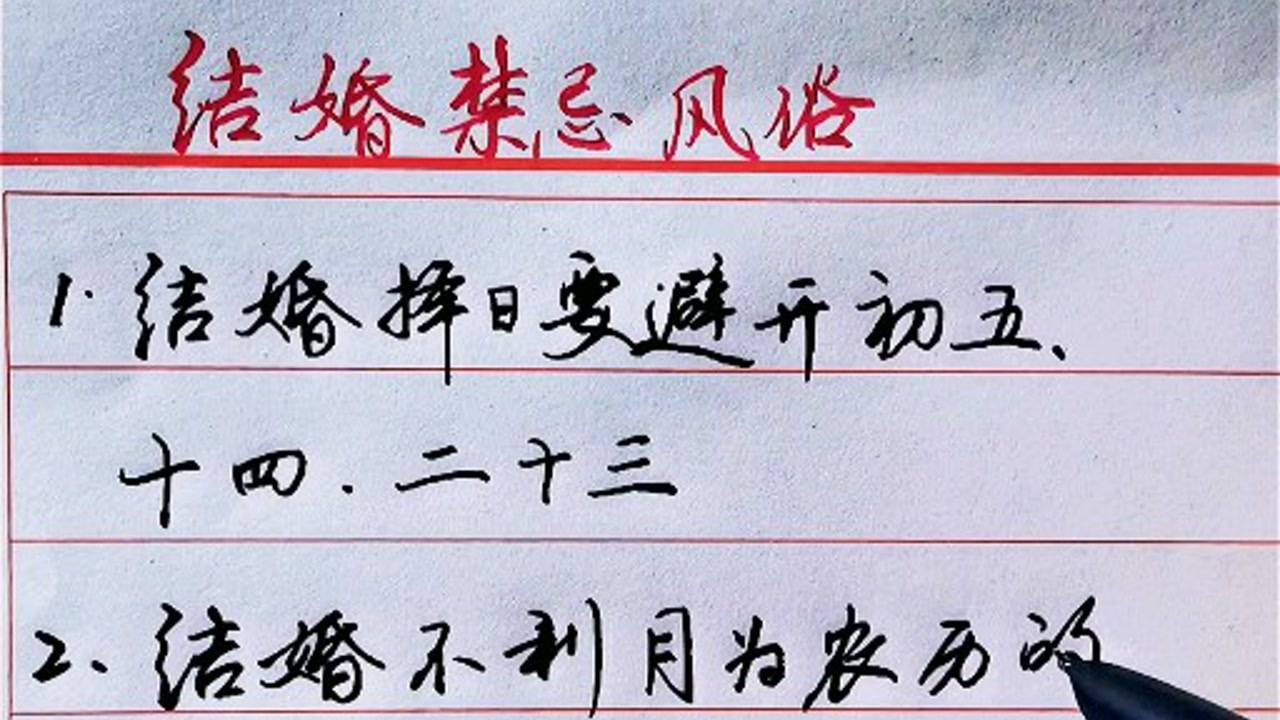 结婚禁忌风俗
1.结婚择日要避开初五、
十四.二十三
2.结婚不利月为农历的